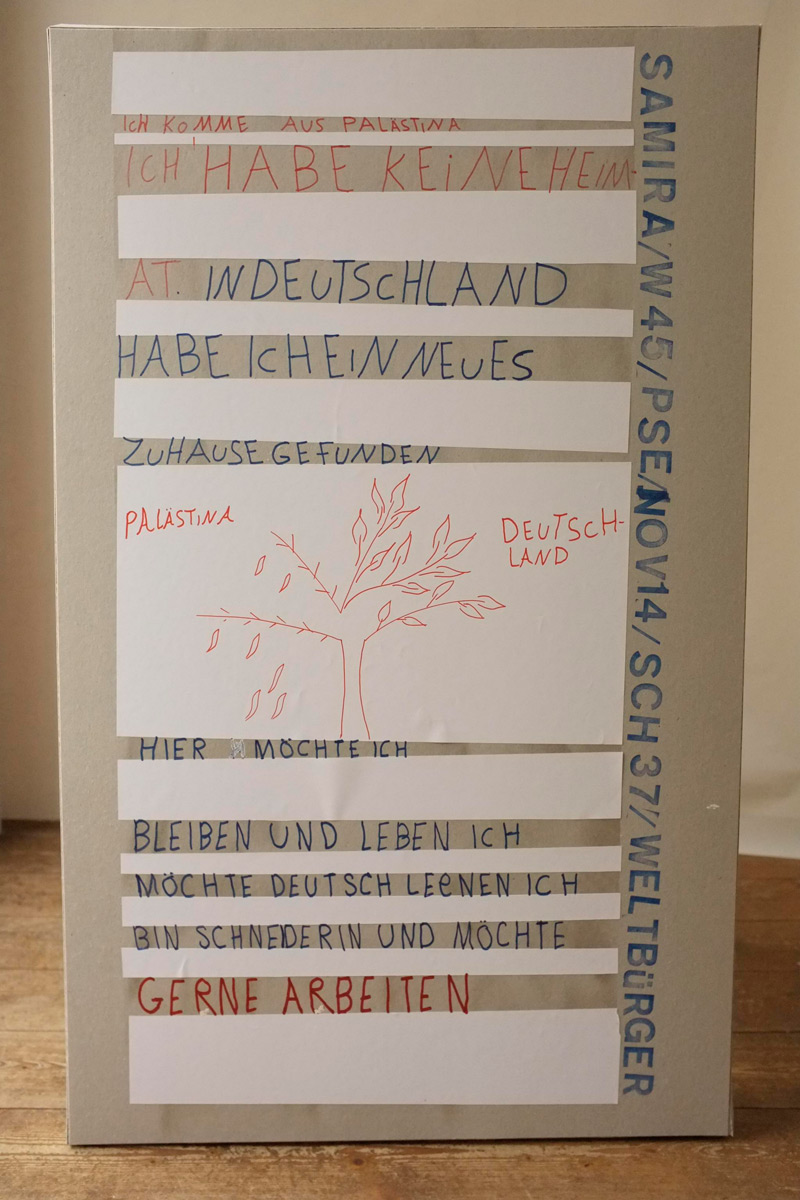 ICH KOMME AUS PALÄSTINA
ICH HABE KEINE HEIM-
AT. IN DEUTSCHLAND
HABE ICH EIN NEUES
ZUHAUSE GEFUNDEN
PALÄSTINA
DEUTSCH-
LAND
HIER MÖCHTE ICH
BLEIBEN UND LEBEN ICH
MÖCHTE DEUTSCH LERNEN ICH
BIN SCHNEIDERIN UND MÖCHTE
GERNE ARBEITEN
SAMIRA/W45/PSE/NOV14/SCH37//WELTBÜRGER